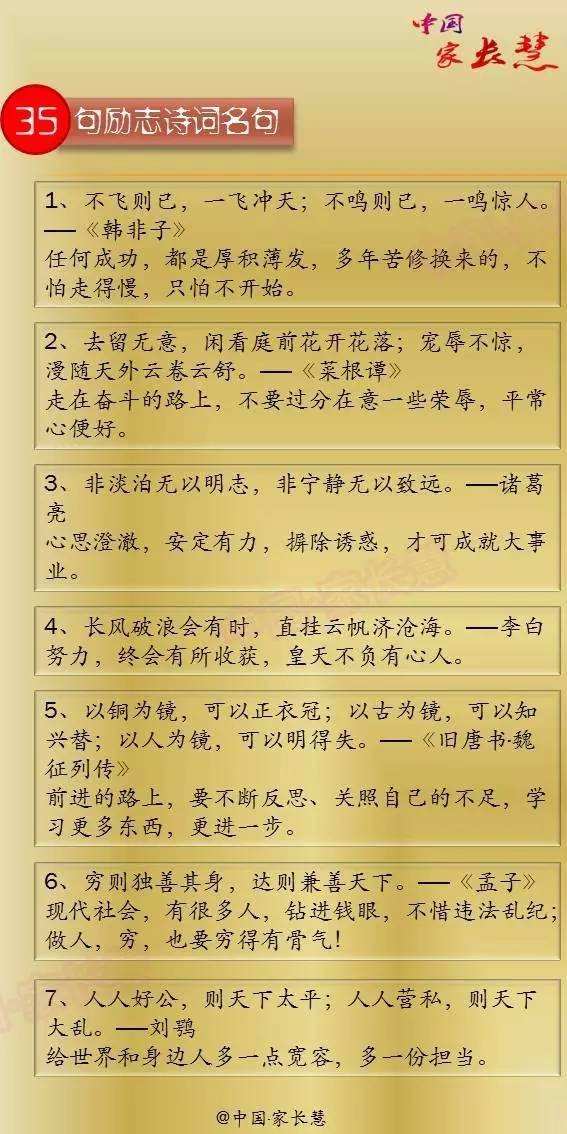 中国
家长慧
35句励志诗词名句
1、不飞则已，一飞冲天；不鸣则已，一鸣惊人。
——《韩非子》
任何成功，都是厚积薄发，多年苦修换来的，不
怕走得慢，只怕不开始。
2、去留无意，闲看庭前花开花落；宠辱不惊，
漫随天外云卷云舒。——《菜根谭》
走在奋斗的路上，不要过分在意一些荣辱，平常
心便好。
3、非淡泊无以明志，非宁静无以致远。——诸葛
亮
心思澄澈，安定有力，摒除诱惑，才可成就大事
业。
4、长风破浪会有时，直挂云帆济沧海。——李白
努力，终会有所收获，皇天不负有心人。
5、以铜为镜，可以正衣冠；以古为镜，可以知
兴替；以人为镜，可以明得失。——《旧唐书·魏
征列传》
前进的路上，要不断反思、关照自己的不足，学
习更多东西，更进一步。
6、穷则独善其身，达则兼善天下。——《孟子》
现代社会，有很多人，钻进钱眼，不惜违法乱纪；
做人，穷，也要穷得有骨气！
7、人人好公，则天下太平；人人营私，则天下
大乱。——刘鹗
给世界和身边人多一点宽容，多一份担当。
@中国·家长慧